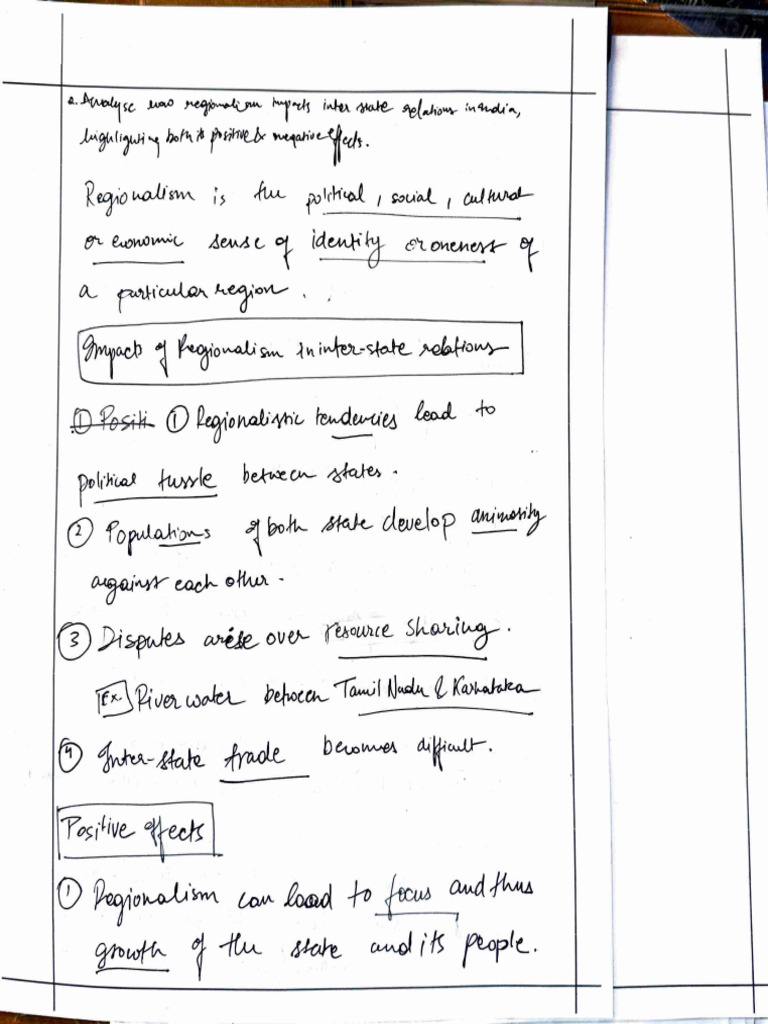 2. Analyse how regionalism impacts inter state relations in India,
highlighting both its positive & negative effects.
Regionalism is the political, social, cultural
or economic sense of identity or oneness of
a particular region.
Impacts of Regionalism in inter-state relations
① Positi ① Regionalistic tendencies lead to
political tussle between states.
② Populations of both state develop animosity
against each other.
③ Disputes arise over resource sharing.
Ex. River water between Tamil Nadu & Karnataka
④ Inter-state trade becomes difficult.
Positive effects
① Regionalism can lead to focus and thus
growth of the state and its people.